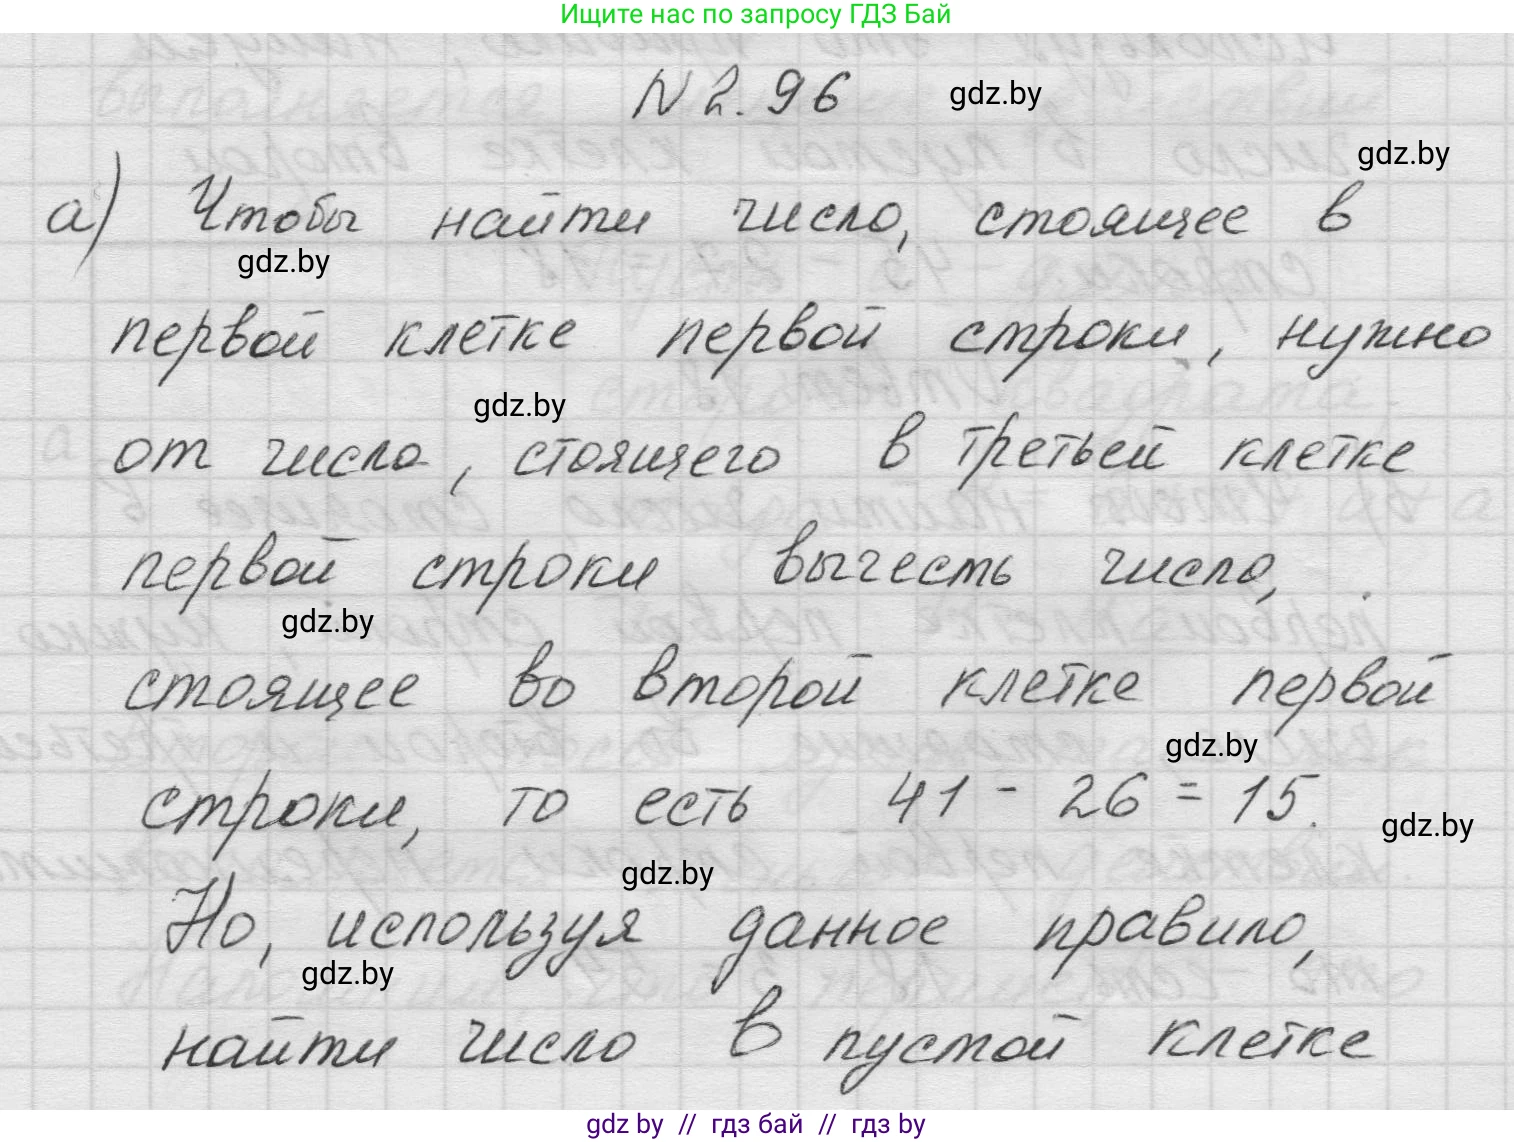 Ищите нас по запросу ГДЗ Бай
N 2.96
gdz.by
gdz.by
а) Чтобы найти число, стоящее в
gdz.by
первой клетке первой строки, нужно
gdz.by
от число, стоящего в третьей клетке
первой строки вычесть число,
gdz.by
стоящее во второй клетке первой
gdz.by
строки, то есть 41 - 26 = 15.
gdz.by
gdz.by
Но, используя данное правило,
gdz.by
найти число в пустой клетке
gdz by // гдз бай // гдз by